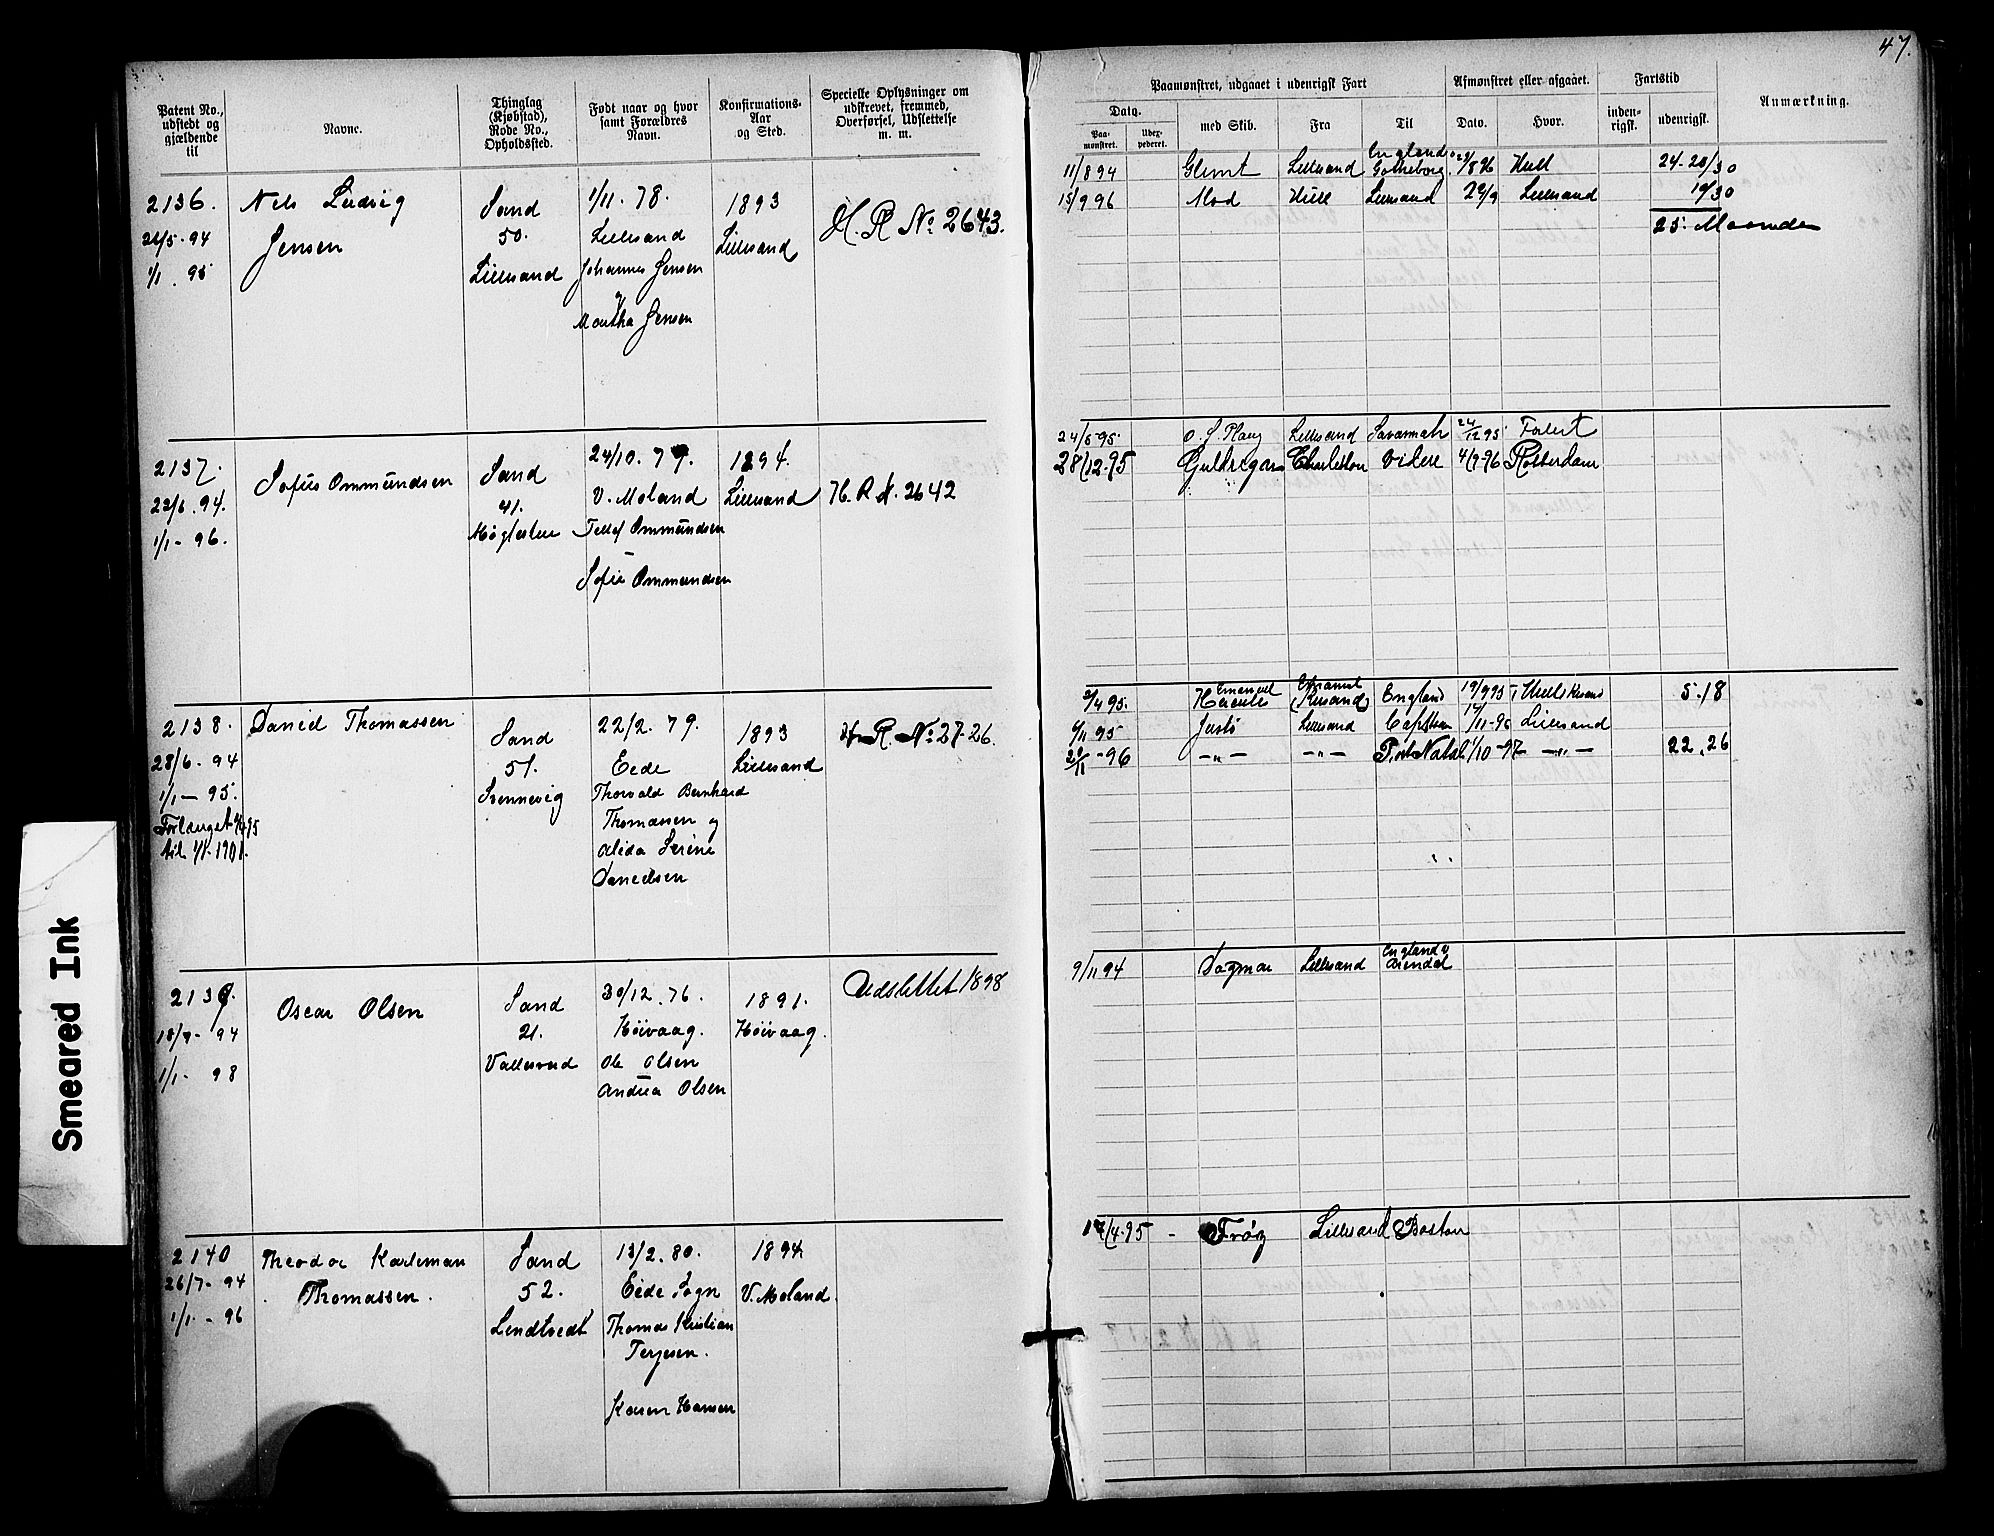 47.
Patent No., udstedt og gjældende til
Navne.
Thinglag (Kjøbstad), Rode No., Opholdssted.
Født naar og hvor samt Forældres Navn.
Konfirmations-Aar og Sted.
Specielle Oplysninger om udskrevet, fremmed, Overførsel, Udslettelse m. m.
Paamønstret, udgaaet i udenrigsk Fart
Afmønstret eller afgaaet.
Fartstid
Anmærkning.
Dato.
Paa-mønstret.
Udex-pederet.
med Skib.
Fra
Til
Dato.
Hvor.
inden-rigsk.
udenrigsk.
2136.
21/5-94
1/1. 95
Nels Ludvig
Jensen
Sand
50.
Lillesand
1/11. 78.
Lillesand
Johannes Jensen
og
Martha Jensen
1893
Lillesand
H. R. No. 2643.
11/8 94 Glimt Lillesand England Gotheborg Hull 24-20/30
15/9 96 Mod Hull Lillesand 29/9 Lillesand 19/30
25 Maaneder
2137.
22/6. 94.
1/1-96.
Sofus Ommundsen
Sand
41.
24/10. 79.
V. Moland
Tellef Ommundsen
Sofie Ommundsen
1894.
Lillesand
H. R. N. 2642
24/5 95. Lillesand Savannah 24/12 95
28/12-95 Charleston videre 4/9-96 Rotterdam
2138.
28/6-94
1/1-95.
Forlænget
til 1/1-1901.
Daniel Thomassen
Sand
51.
Svennevig
22/2. 79.
Eide
Thorvald Bernhard
Thomassen og
Alida Serine
Danielsen
1893
Lillesand
H. R. No. 27-26.
2/4 95. Emanuel Hercules England 19/9 95 5.18
6/11 95 Justo Lillesand 17/11-96 Lillesand
22/11-96 -"- -"- Port Natal 1/10-97 -"- 22.26
2139.
18/7-94
1/1-98
Oscar Olsen
Sand
21.
Vallesverd
30/12. 76.
Höivaag.
Ole Olsen
Andrea Olsen
1891.
Höivaag.
Udslettet 1898
9/11 94 Dagmar Lillesand England & Arendal
2140
26/7-94
1/1-96
Theodor Karleman
Thomassen.
Sand
52.
Lendtvedt
13/2. 80.
Eide Sogn
Thomas Kristian
Terjesen.
Karen Hansen
1894
V. Moland.
17/4-95 - Frøy Lillesand Boston
Smeared Ink